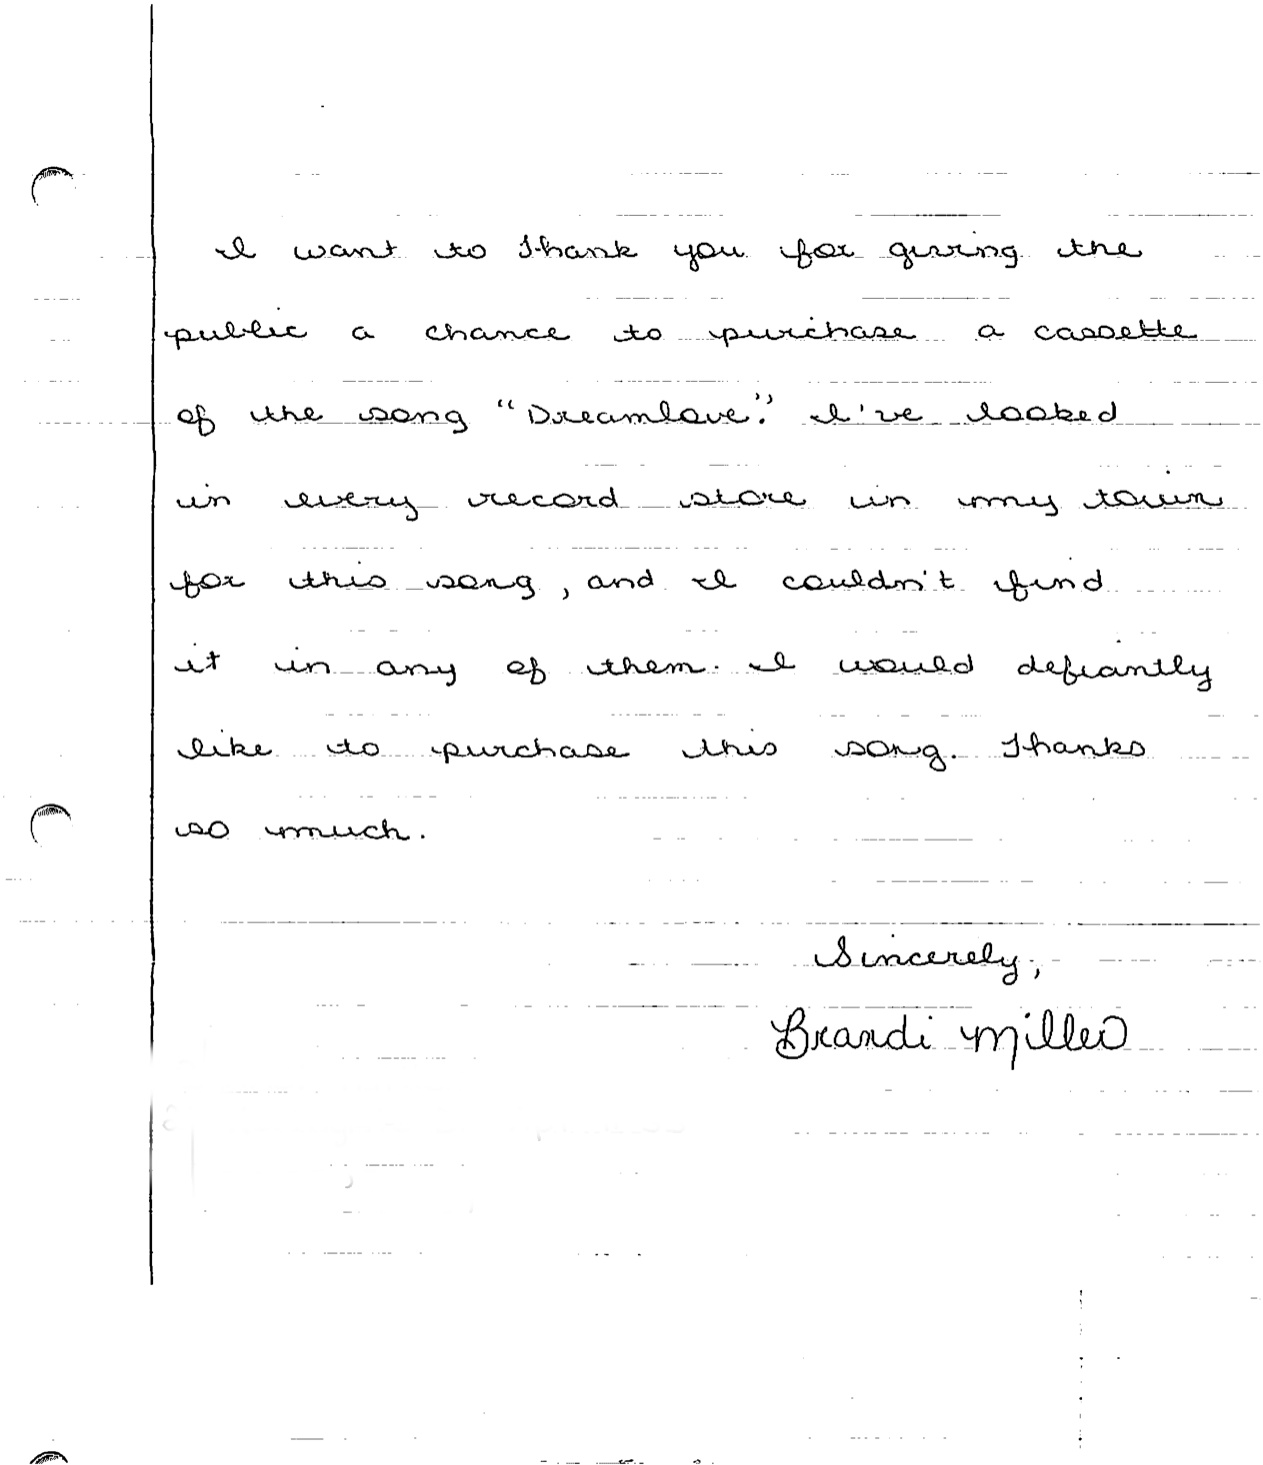 I want to thank you for giving the
public a chance to purchase a cassette
of the song "Dreamlove." I've looked
in every record store in my town
for this song, and I couldn't find
it in any of them. I would defiantly
like to purchase this song. Thanks
so much.
Sincerely,
Brandi Miller